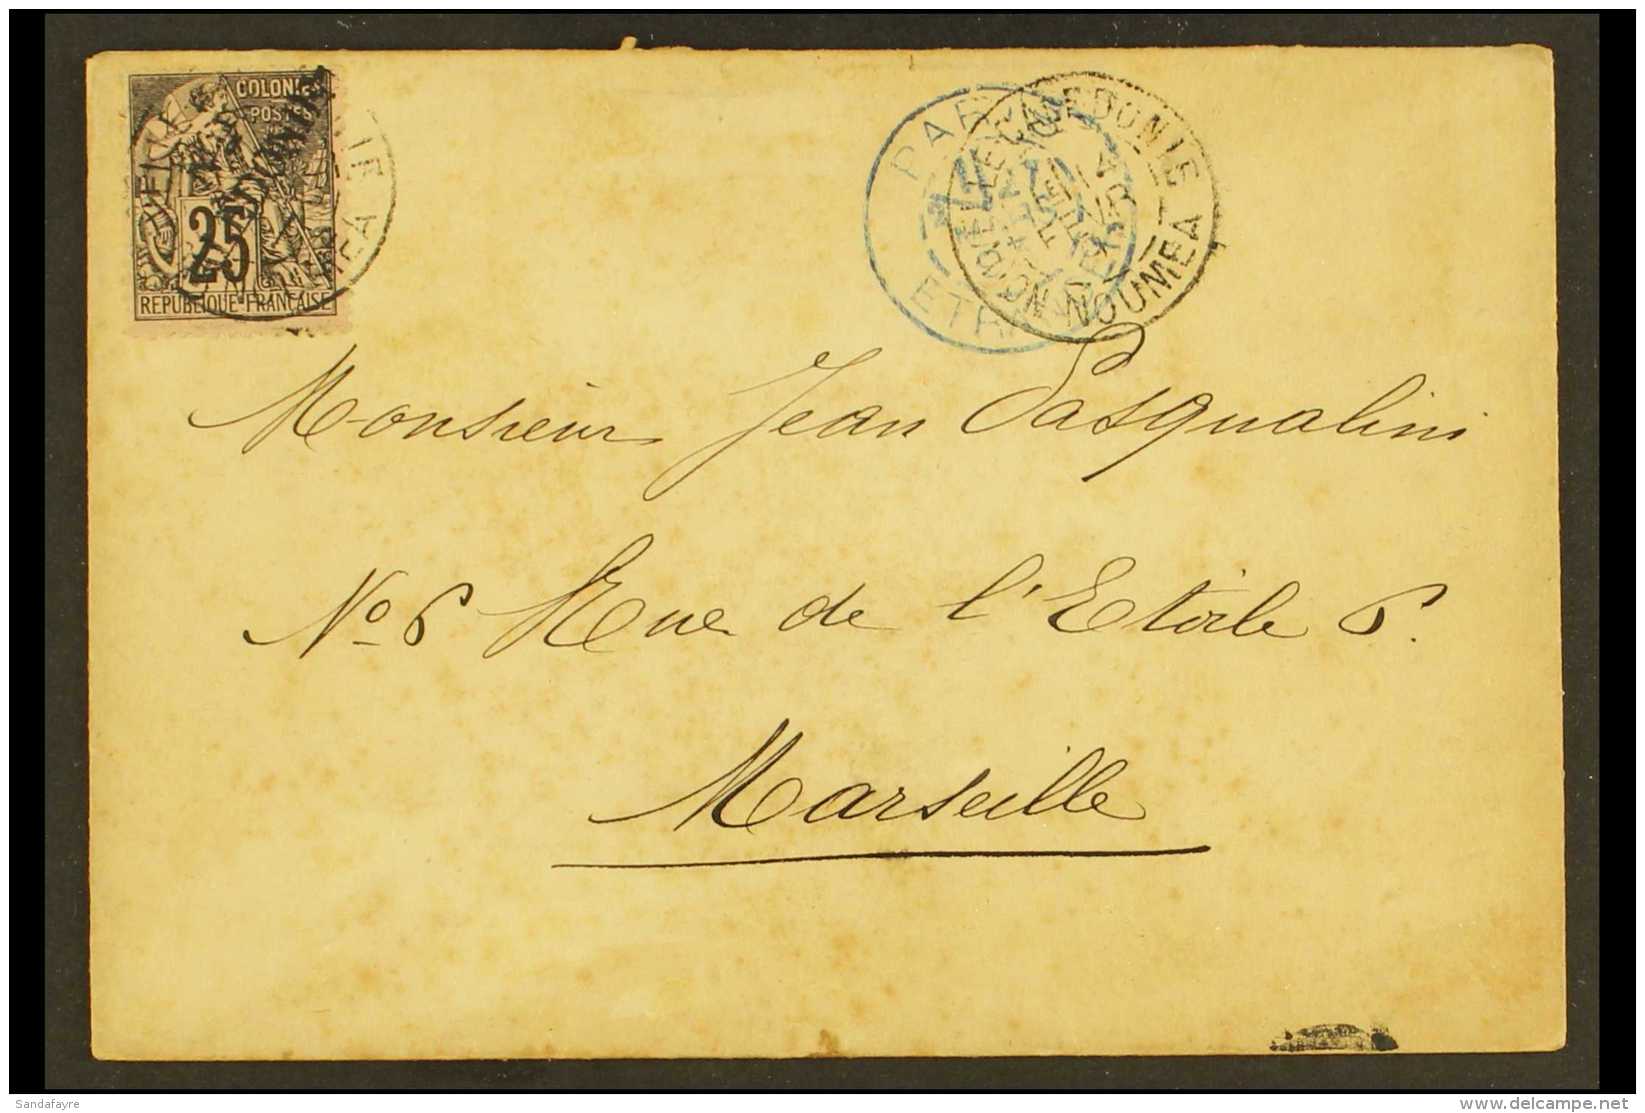 COLONIES
POSTES
25
REPUBLIQUE FRANÇAISE
PARIS
ETRANGER
NOUVELLE CALEDONIE
NOUMEA
Monsieur Jean Pasqualini
No 6 Rue de l'Etoile 6.
Marseille
Sandafayre
www.delcampe.net